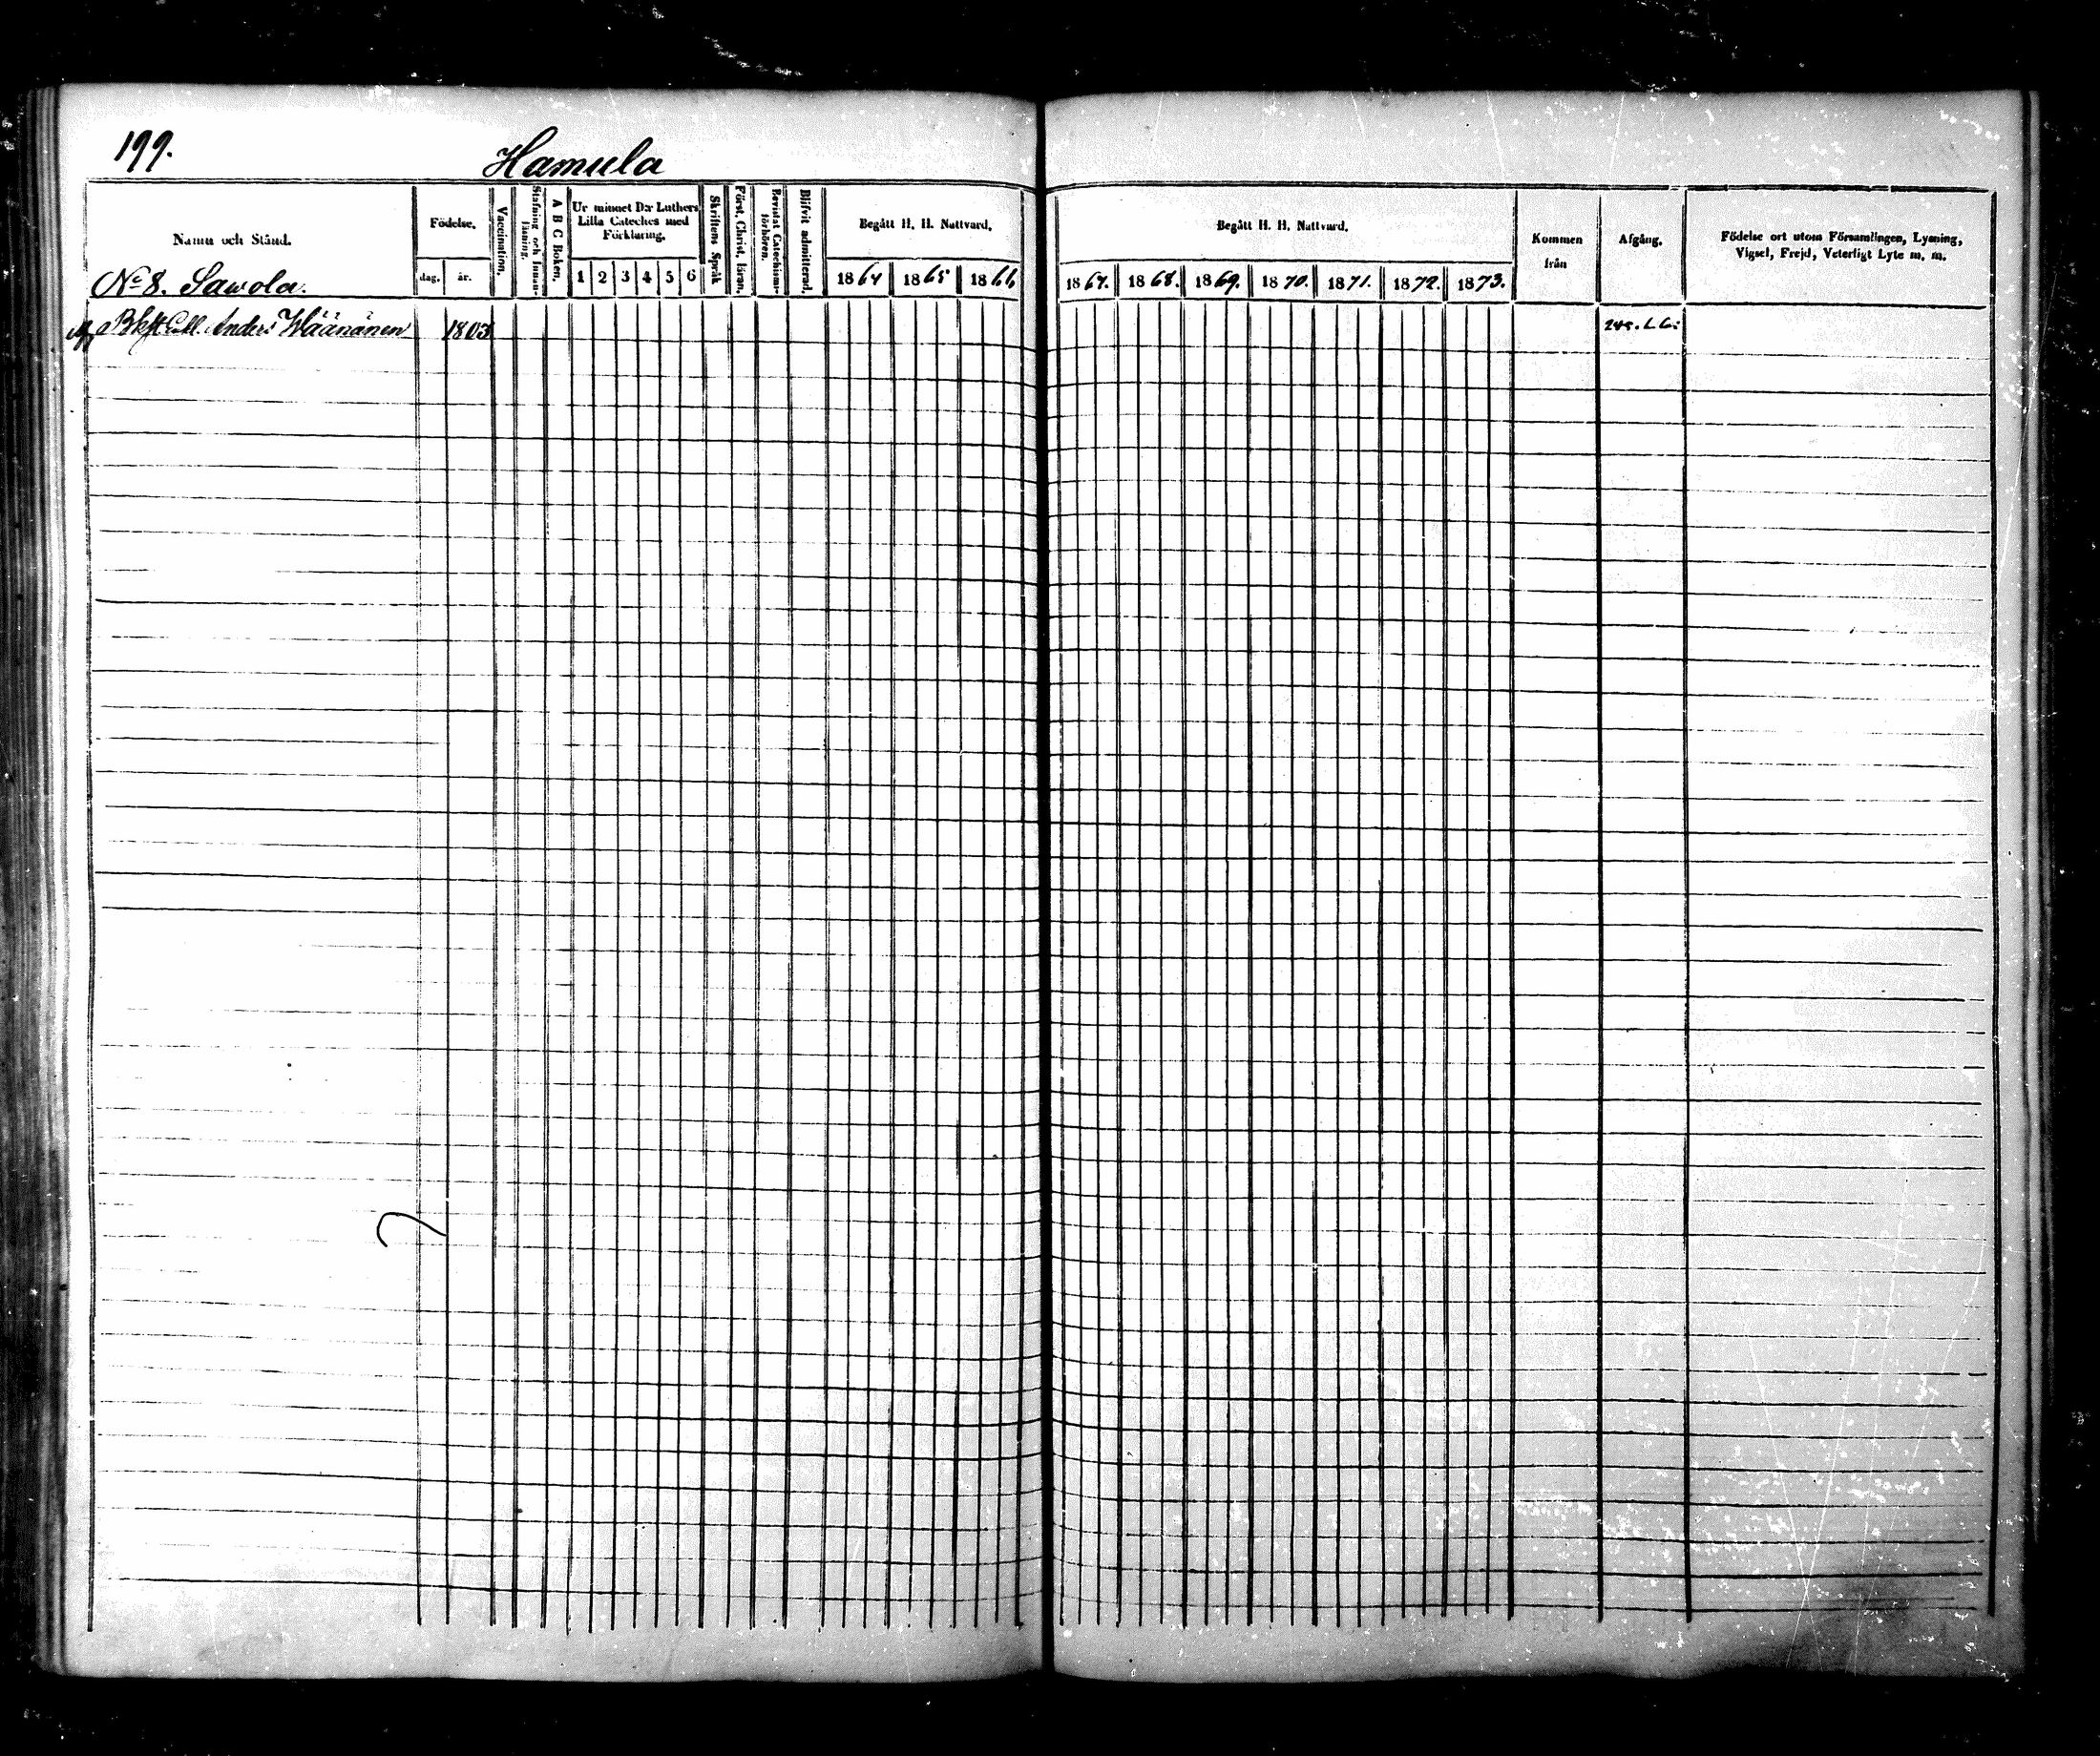 199.
Hamula
Namn och Stånd.
Födelse.
dag.
år.
Vaccination.
Stafning och Innan-läsning.
A B C Boken.
Ur minnet D:r Luthers
Lilla Cateches med
Förklaring.
1 2 3 4 5 6
Skriftens Språk
Först. Christ. läran.
Bevistat Catechismi-förhören.
Blifvit admitterad.
Begått H. H. Nattvard.
1864 1865 1866
Begått H. H. Nattvard.
1867. 1868. 1869. 1870. 1871. 1872. 1873.
Kommen
från
Afgång.
Födelse ort utom Församlingen, Lysning,
Vigsel, Frejd, Veterligt Lyte m. m.
No 8. Sawola.
Anders Wäänänen 1803